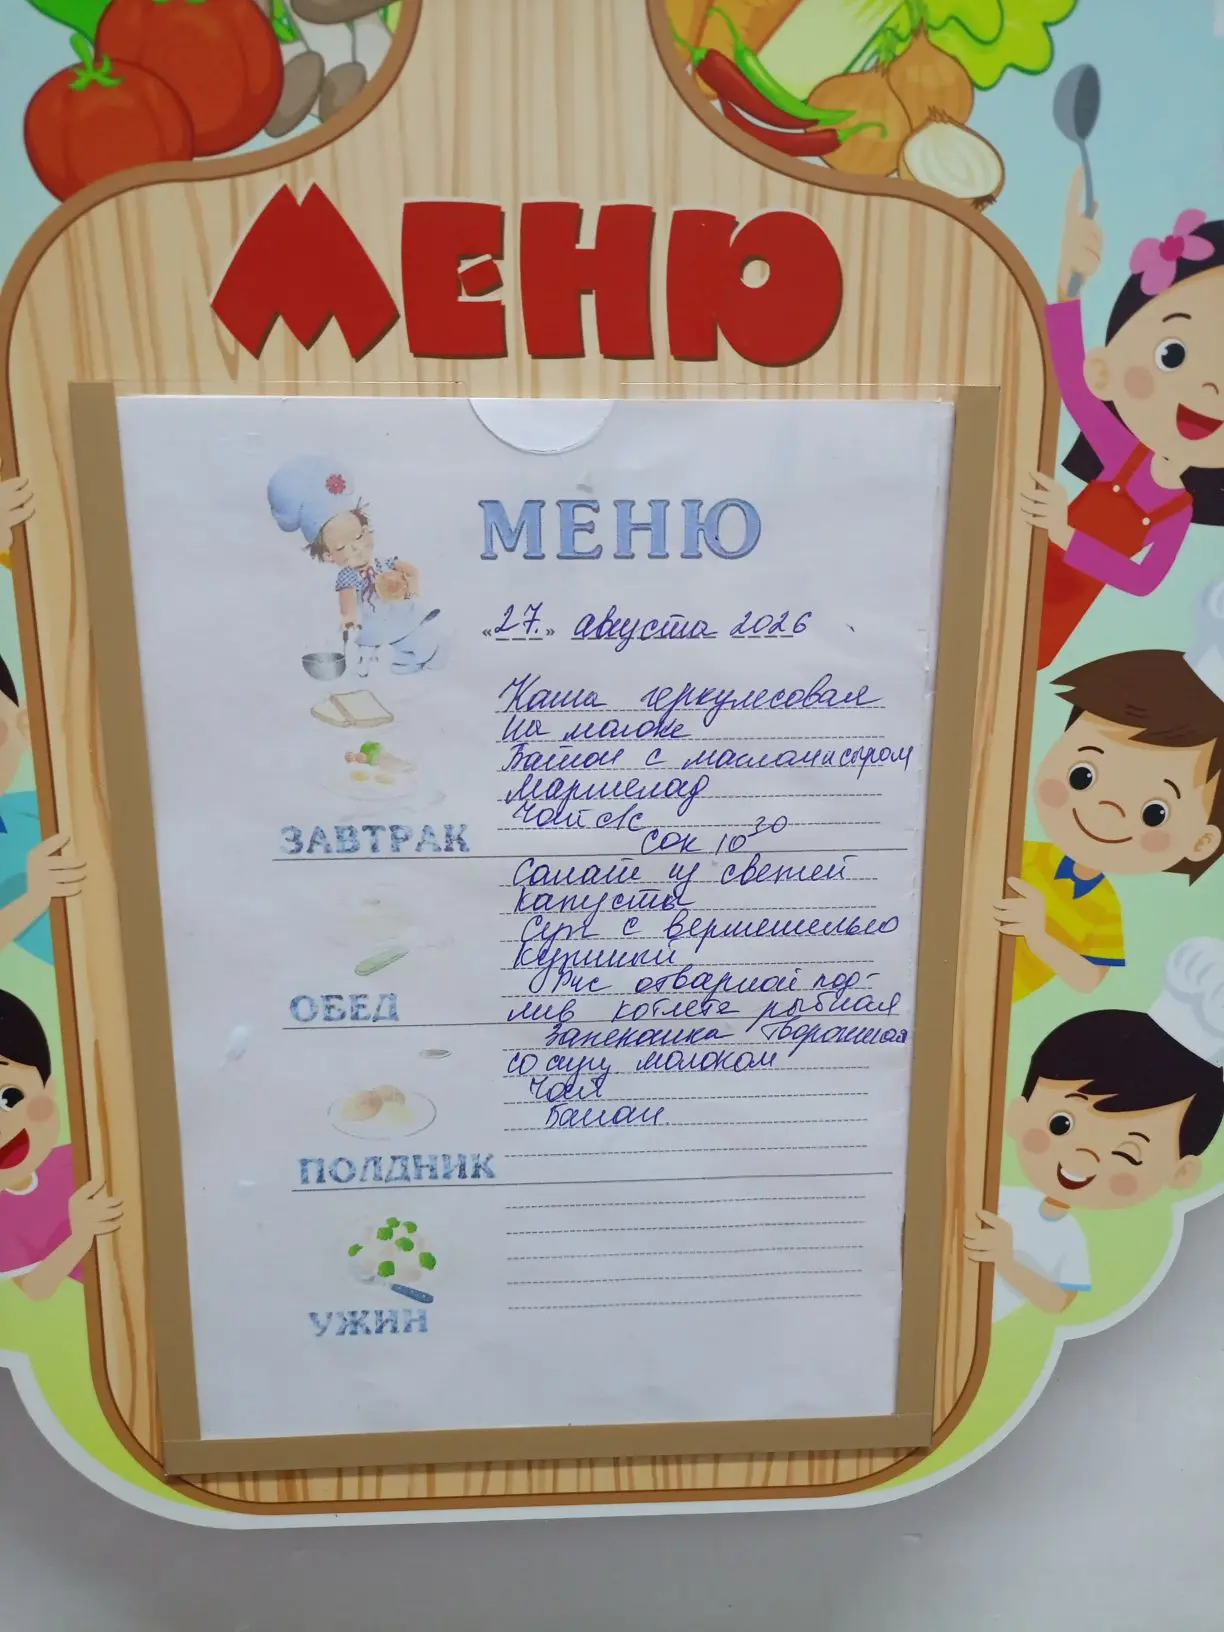 МЕНЮ
МЕНЮ
«27.» августа 2026
Каша геркулесовая
на молоке
Батон с маслом и сыром
Мармелад
Чай
ЗАВТРАК
Сок 10 30
Салат из свежей
капусты
Суп с вермишелью
Курицей
Рис отварной под-
лив котлета рыбная
ОБЕД
Запеканка творожная
со сгущ. молоком
Чай
Банан.
ПОЛДНИК
УЖИН